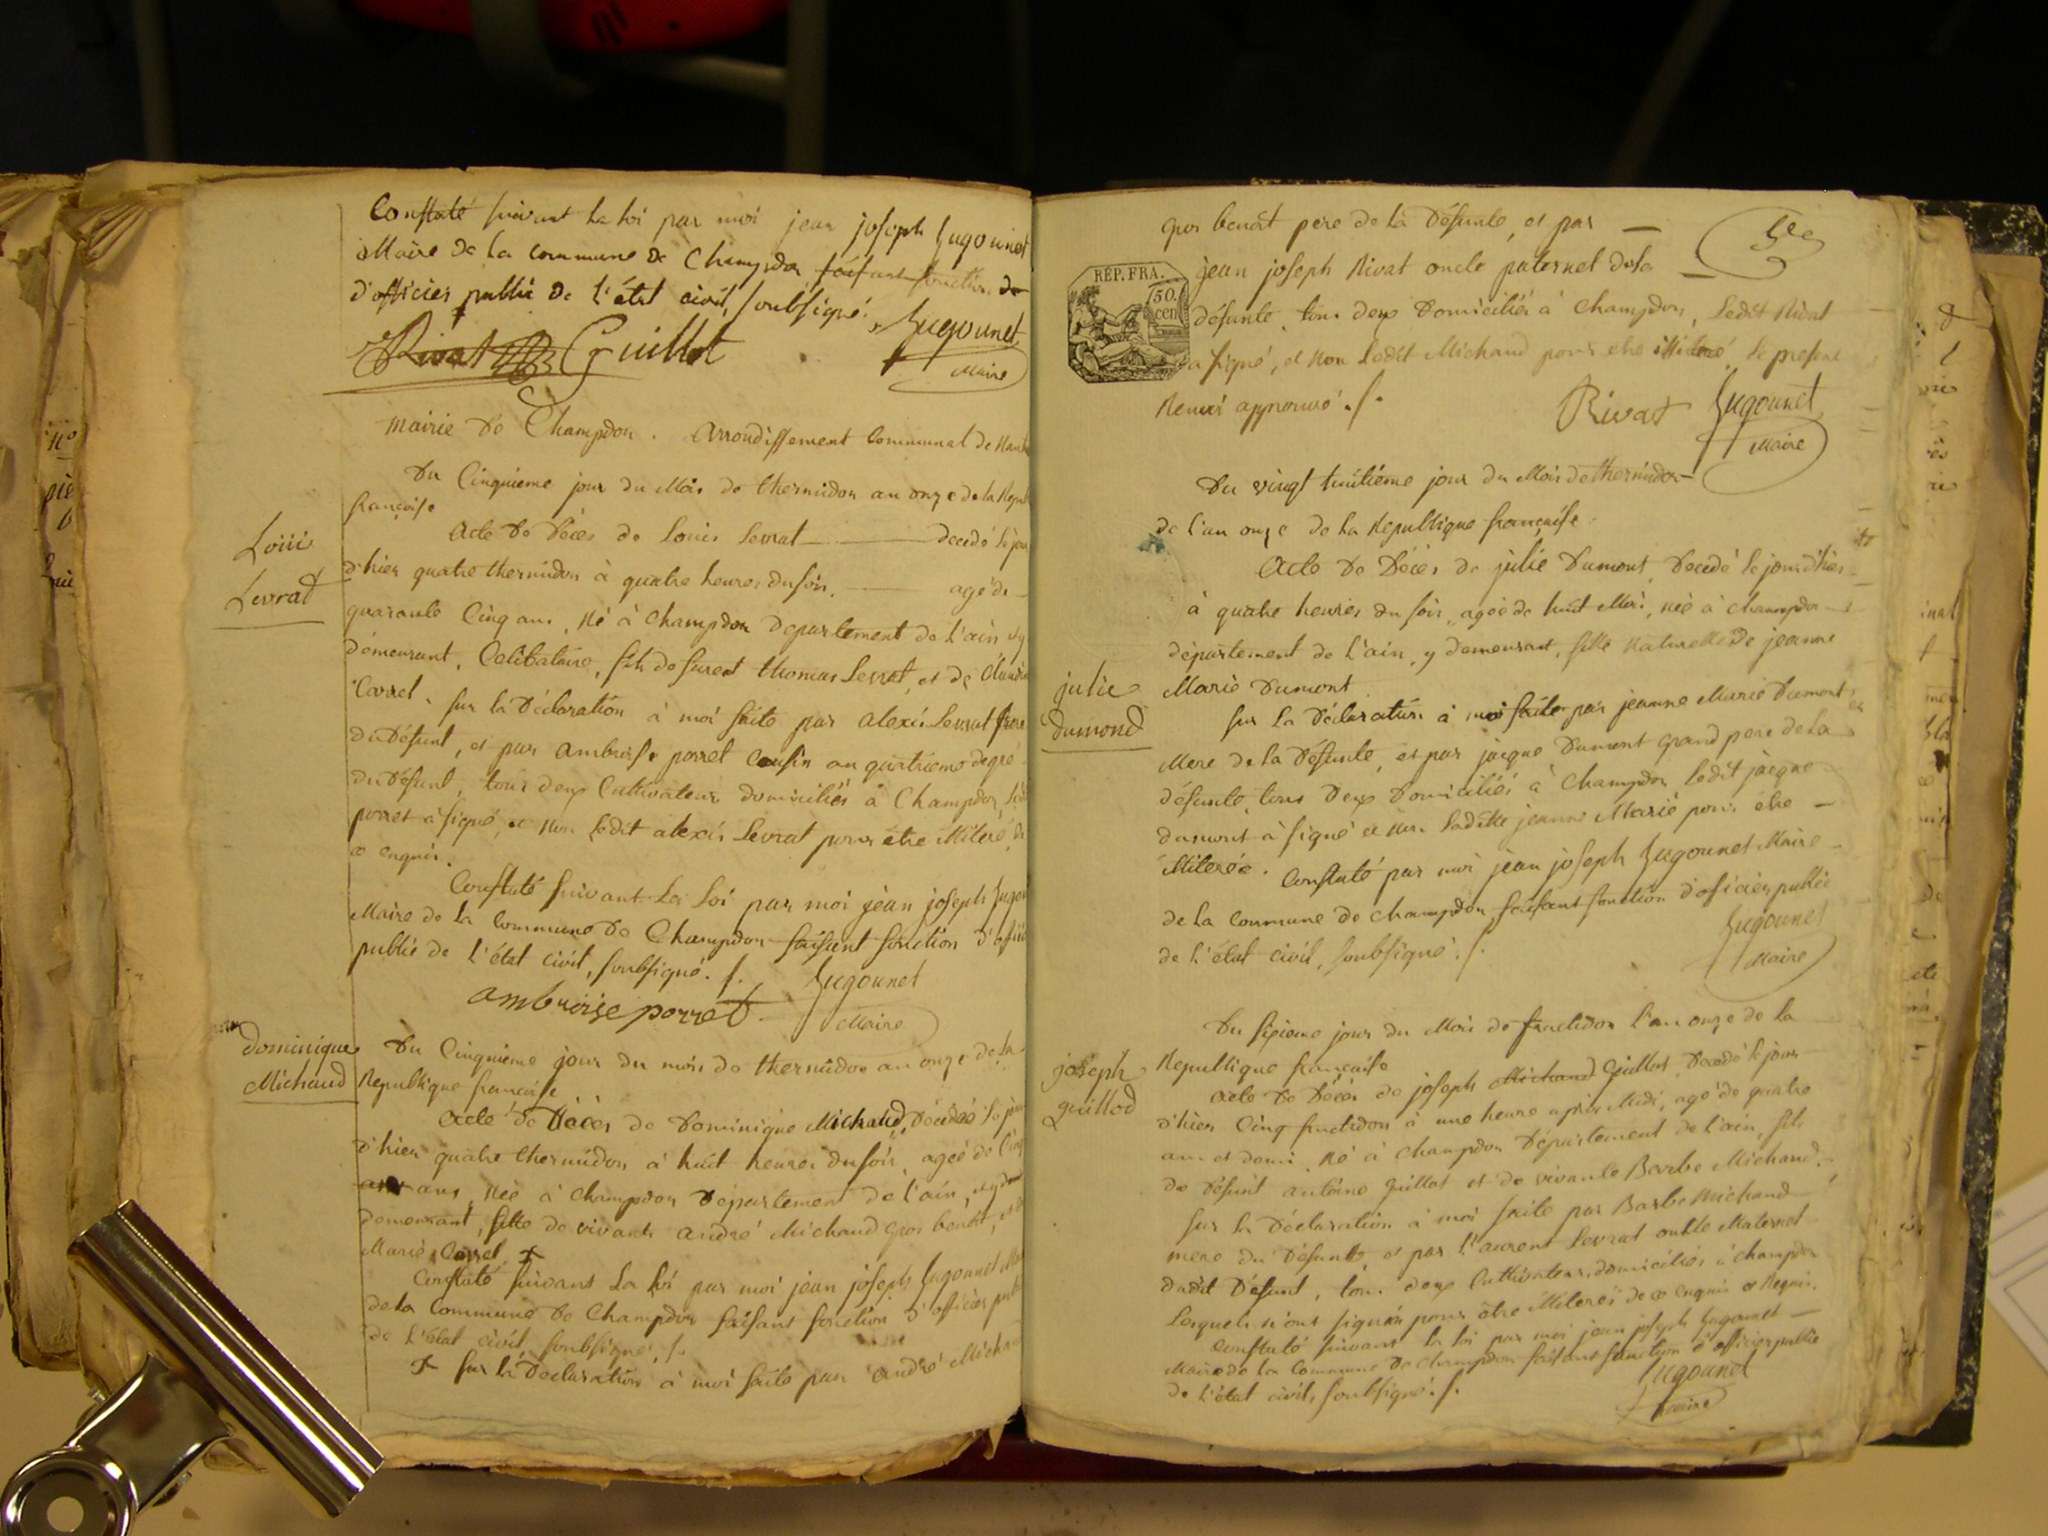 Constaté suivant la loi par moi jean joseph Jugounet
Maire de la commune de Champdor faisant fonction de
d'officier public de l'état civil, soubsigné.
Rivat Guillot Jugounet
Maire
mairie de Champdor. Arrondissement Communal de
Du Cinquieme jour du Mois de thermidor an onze de la
françoise
Louis
Levrat
Acte de Décès de Louis Levrat decedé le jour
d'hier quatre thermidor à quatre heures du soir, agé de
quarante Cinq ans, Né à Champdor departement de l'ain, y
demeurant, Celibataire, fils de furent thomas Levrat, et de Claudine
Carrel. sur la déclaration à moi faite par alexis Levrat frere
du défunt, et par ambroise porret Cousin au quatrieme degré
du défunt, tous deux Cultivateurs domiciliés à Champdor,
porret à signé, et Non ledit alexis Levrat pour être illiteré, de
ce enquis.
Constaté suivant la Loi par moi jean joseph
Maire de la commune de Champdor faisant fonction
public de l'état civil, soubsigné. /.
ambroise porret Jugounet
Maire
dominique
Michaud
Du Cinquieme jour du mois de thermidor an onze de la
Republique française
Acte de Décès de Dominique Michaud, Décédée le jour
d'hier quatre thermidor à huit heures du soir, ageé de Cinq
ans, Née à Champdor Département de l'ain,
demeurant, fille de vivants andré Michaud gros benoit,
Marie Carrel +
Constaté suivant la loi par moi jean joseph Jugounet
de la Commune de Champdor faisant fonction d'officier
de l'état civil, soubsigné. /.
+ sur la Déclaration à moi faite par andré
gros benoit pere de la défunte, et par
RÉP. FRA.
50.
cen
jean joseph Rivat oncle paternel de la
défunte, tous deux domiciliés à Champdor, ledit Rivat
a signé, et Non ledit Michaud pour etre illiteré le present
Renvoi approuvé. /.
Rivat Jugounet
Maire
Du vingt huitième jour du Mois de thermidor
de l'an onze de la Republique française
julie
dumond
Acte de Décès de julie Dumont, Decedé le jour d'hier
à quatre heures du soir, ageé de huit Mois, Née à Champdor
département de l'ain, y demeurant, fille Naturelle de jeanne
Marie Dumont.
Sur la Déclaration à moi faite par jeanne Marie Dumont
Mere de la Défunte, et par jacque Dumont grand pere de la
défunte, tous deux Domiciliés à Champdor, ledit jacque
dumont à signé et non ladite jeanne Marie pour être
illiterée. Constaté par moi jean joseph Jugounet Maire
de la commune de champdor, faisant fonction d'officier public
de l'état civil, soubsigné. /.
Jugounet
Maire
joseph
guillod
Du sixieme jour du Mois de fructidor l'an onze de la
Republique française
Acte de Décès de joseph Michaud Guillot, Decedé le jour
d'hier Cinq fructidor à une heure après Midi, agé de quatre
ans et demi, Né à Champdor Département de l'ain, fils
de Défunt antoine guillot et de vivante Barbe Michaud.
Sur la Déclaration à moi faite par Barbe Michaud
mere du Défunt, et par Laurent Levrat oncle Maternel
dudit Défunt, tous deux Cultivateurs domiciliés à champdor
lesquels n'ont signés pour être illiterés de ce enquis et Requis.
Constaté suivant la loi par moi jean joseph Jugounet
Maire de la Commune de Champdor faisant fonction d'officier public
de l'état civil, soubsigné. /.
Jugounet
Maire